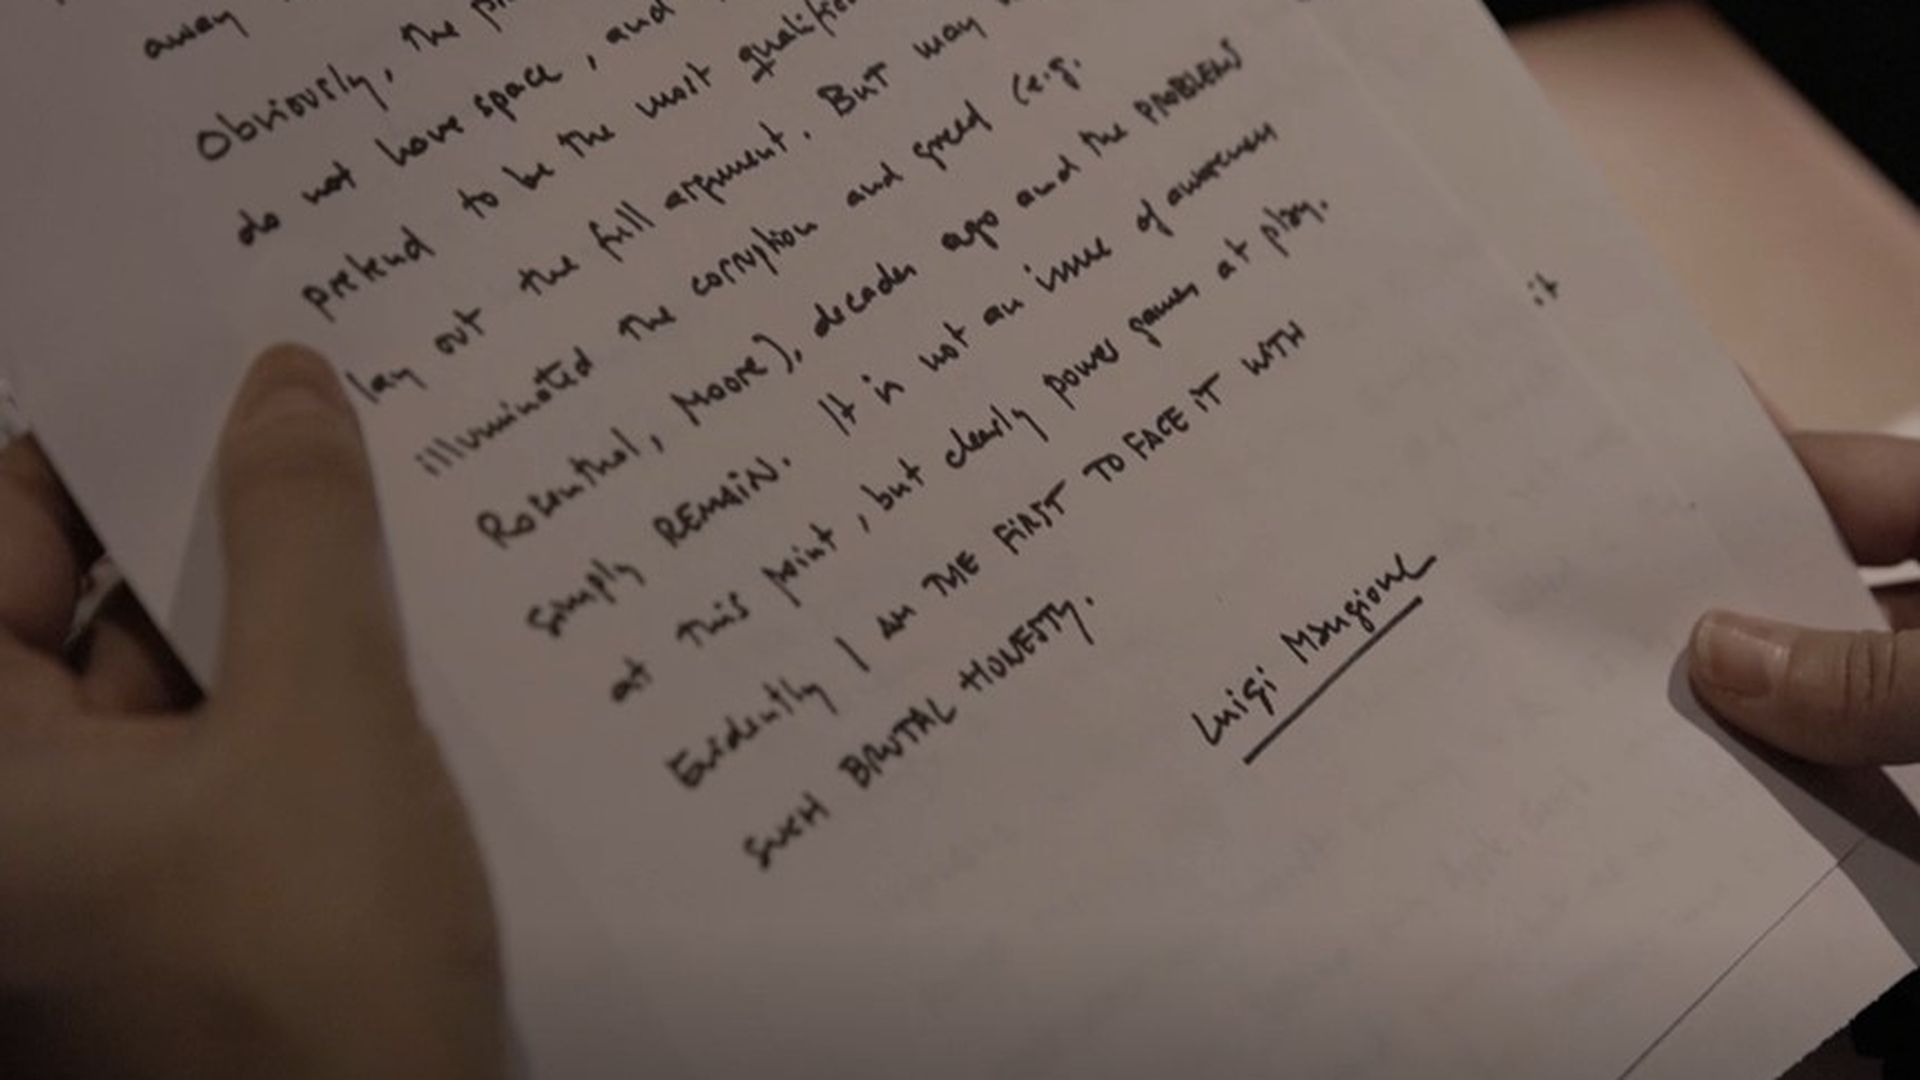 away
Obviously, the
do not have space, and
pretend to be the most
lay out the full argument. But may
illuminated the corruption and greed (e.g.
Rosenthal, Moore), decades ago and the PROBLEMS
simply REMAIN. It is not an issue of awareness
at this point, but clearly power games at play.
Evidently I AM THE FIRST TO FACE IT WITH
SUCH BRUTAL HONESTY.
Luigi Mangione
it